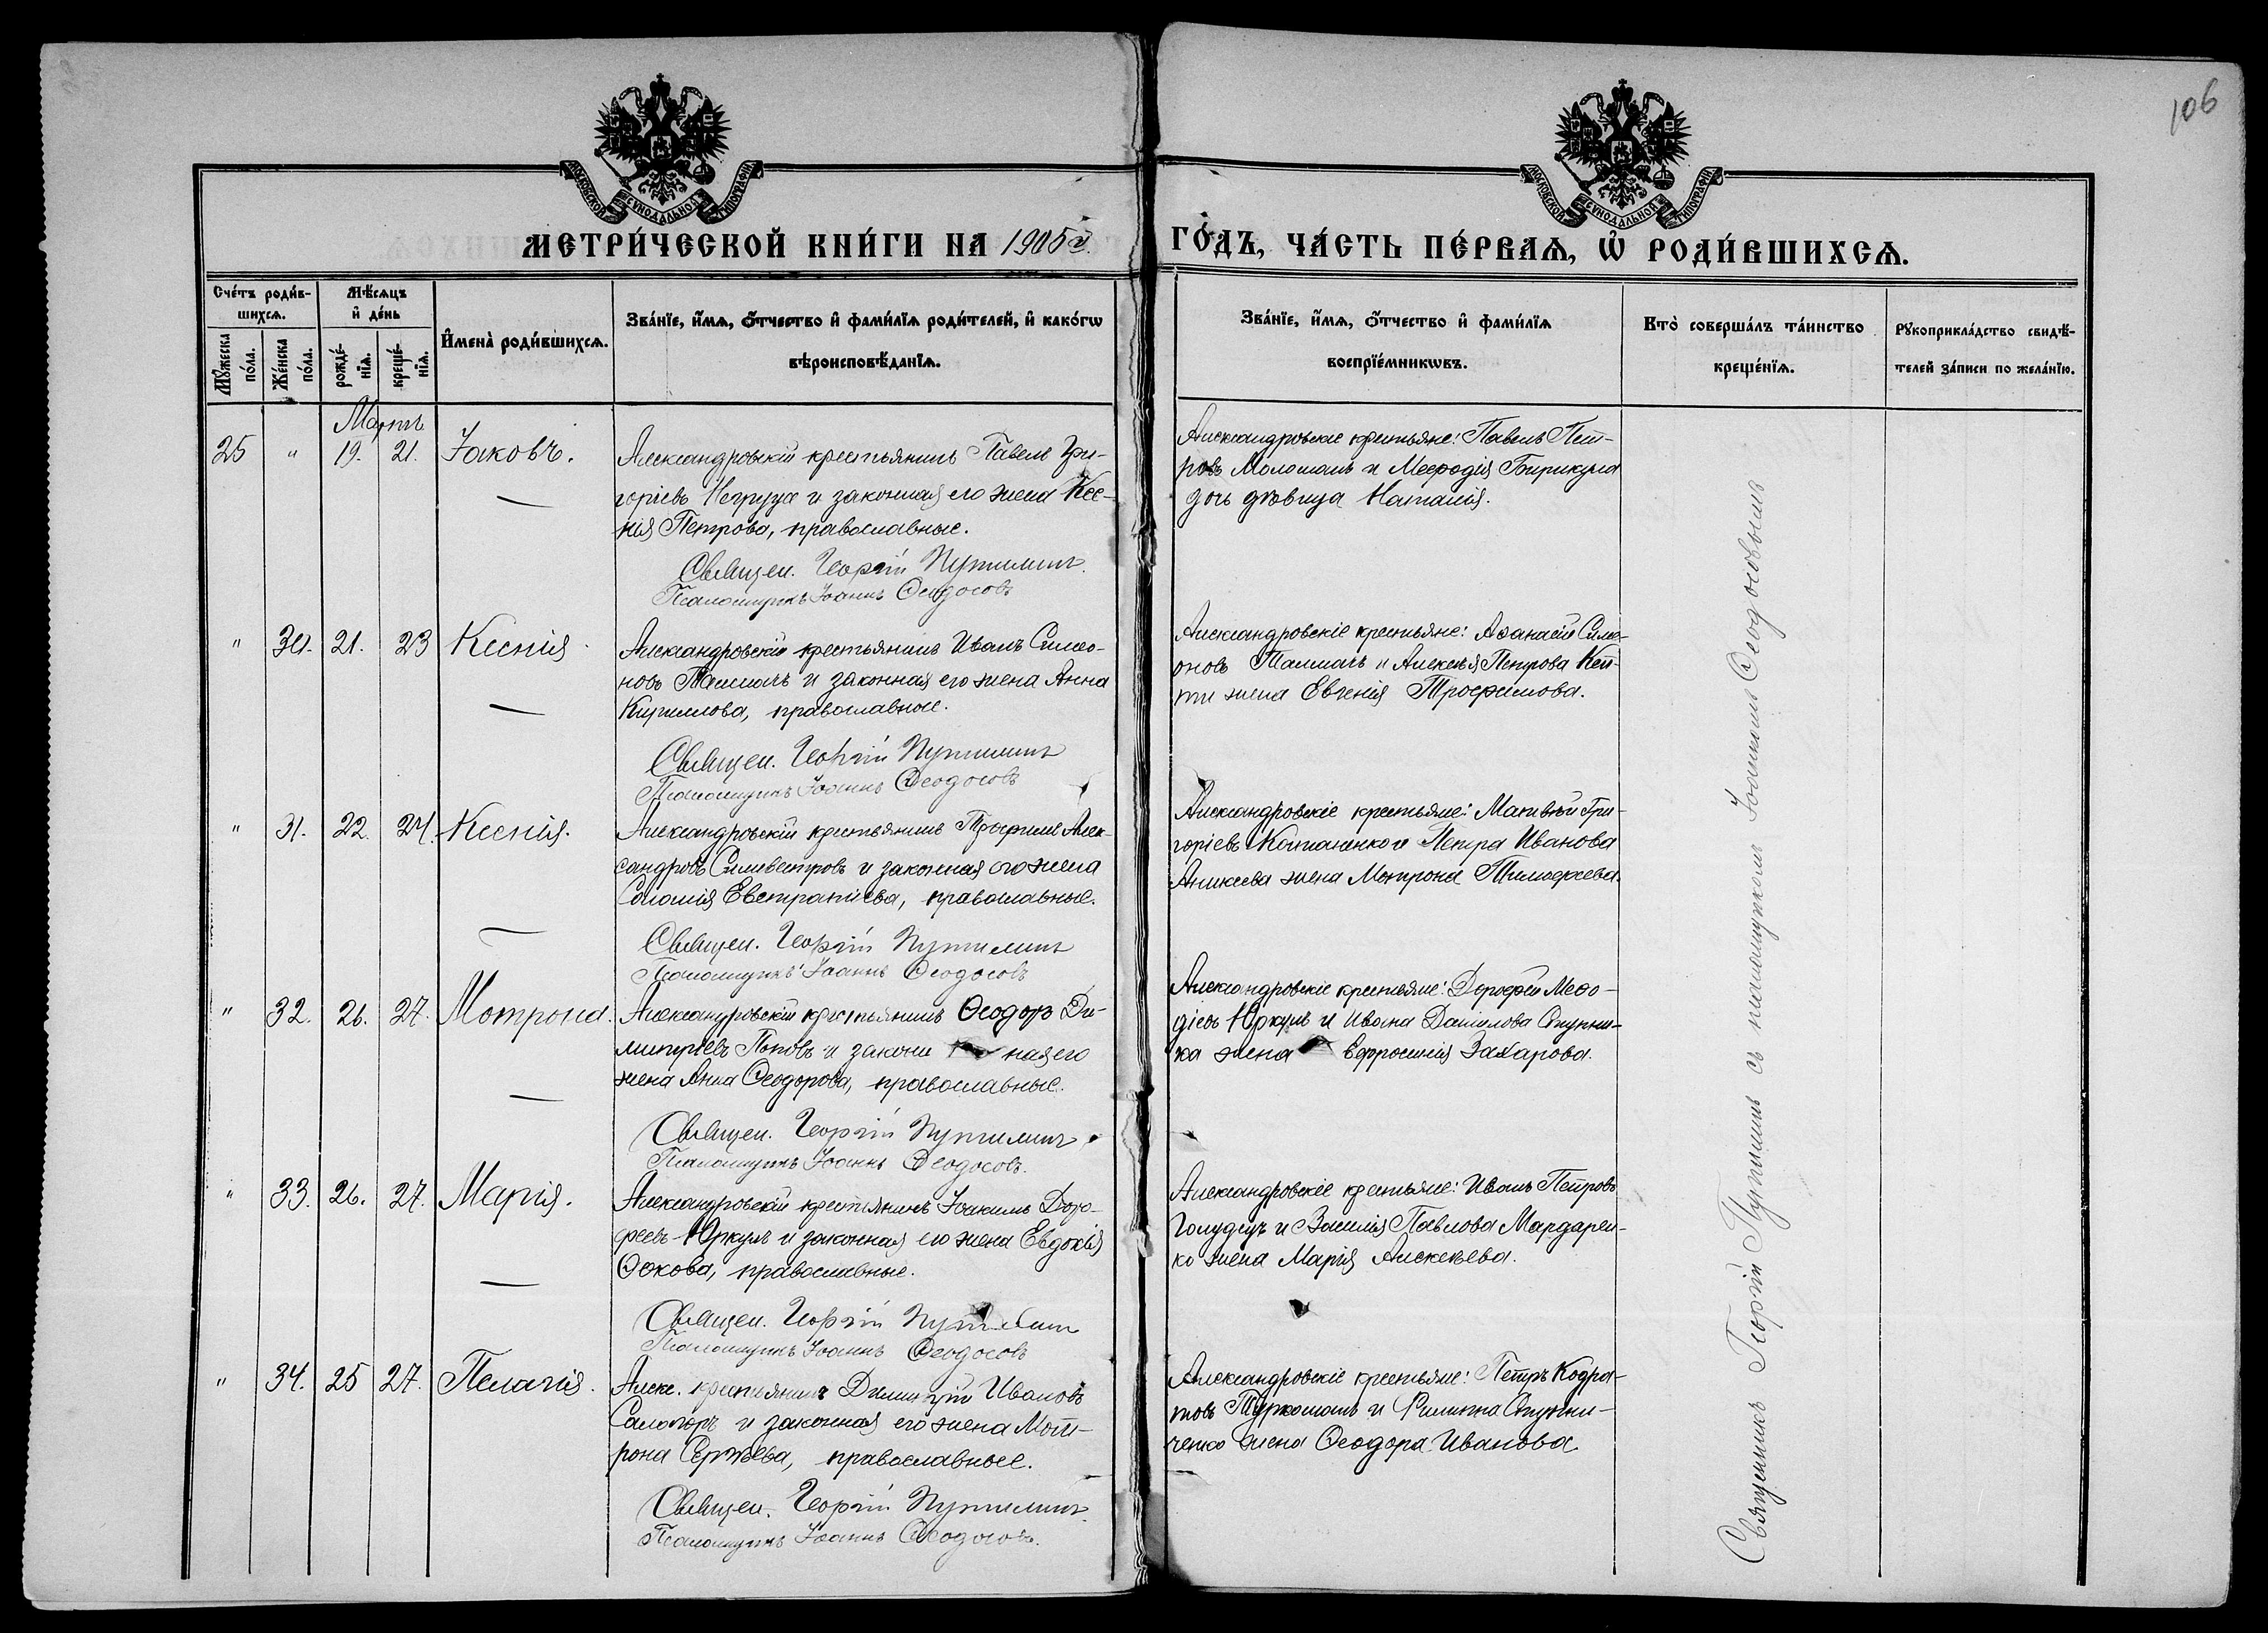 106
МОСКОВСКОЙ СѴНОДАЛЬНОЙ ТИПОГРАФІИ
МОСКОВСКОЙ СѴНОДАЛЬНОЙ ТИПОГРАФІИ
МЕТРИ́ЧЕСКОЙ КНИ́ГИ НА 1905 й
ГО́ДЪ, ЧА́СТЬ ПЕ́РВАѦ, Ѡ҆ РОДИ́ВШИХСѦ.
Сче́тъ роди́в-
шихсѧ.
Мꙋ́жеска по́ла.
Же́нска по́ла.
Мѣ́сѧцъ
и҆ де́нь
рожде́-нїѧ.
креще́-нїѧ.
И҆мена̀ роди́вшихсѧ.
Зва́нїе, и҆́мѧ, ѻ҆́тчество и҆ фами́лїѧ роди́телей, и҆ како́гѡ
вѣроисповѣ́данїѧ.
Зва́нїе, и҆́мѧ, ѻ҆́тчество и҆ фами́лїѧ
воспрїе́мникѡвъ.
Кто̀ соверша́лъ та́инство
креще́нїѧ.
Рꙋкоприкла́дство свидѣ́-
телей за́писи по жела́нїю.
Мартъ
25 " 19. 21. Іаковъ.
Александровскій крестьянинъ Павелъ Гри-
горіевъ Негруца и законная его жена Ксе-
нія Петрова, православные.
Священ. Георгій Путилинъ
Псаломщикъ Іоаннъ Ѳеодосовъ
Александровскіе крестьяне: Павелъ Пет-
ровъ Молошагъ и Меѳодія Бирикула
дочь дѣвица Наталія.
" 30. 21. 23 Ксенія
Александровскій крестьянинъ Иванъ Симео-
новъ Талмачъ и законная его жена Анна
Кириллова, православные.
Священ. Георгій Путилинъ
Псаломщикъ Іоаннъ Ѳеодосовъ
Александровскіе крестьяне: Аѳанасій Симе-
оновъ Талмачъ и Алексѣя Петрова Кеп-
ти жена Евгенія Трофимова.
" 31. 22. 24. Ксенія.
Александровскій крестьянинъ Трофимъ Алек-
сандровъ Силивестровъ и законная его жена
Соломія Евстратіева, православные.
Священ. Георгій Путилинъ
Псаломщикъ Іоаннъ Ѳеодосовъ
Александровскіе крестьяне: Матвѣй Гри-
горіевъ Коптаненко и Петра Иванова
Аникеева жена Мотрона Тимоѳеева.
" 32. 26. 27. Мотрона.
Александровскій крестьянинъ Ѳеодоръ Ди-
митріевъ Поповъ и закон ная его
жена Анна Ѳеодорова, православные.
Священ. Георгій Путилинъ
Псаломщикъ Іоаннъ Ѳеодосовъ.
Александровскіе крестьяне: Дороѳей Меѳо-
діевъ Юркулъ и Ивана Данилова Ступни-
ка жена Евфросинія Захарова.
" 33. 26. 27. Марія.
Александровскій крестьянинъ Іоакимъ Доро-
феевъ Юркулъ и законная его жена Евдокія
Ѳокова, православные.
Священ. Георгій Путилинъ
Псаломщикъ Іоаннъ Ѳеодосовъ
Александровскіе крестьяне: Иванъ Петровъ
Голудецъ и Василія Павлова Мардарен-
ко жена Марія Алексѣева.
" 34. 25 27. Пелагія.
Алекс. крестьянинъ Димитрій Ивановъ
Саложоръ и законная его жена Мот-
рона Сергѣева, православные.
Священ. Георгій Путилинъ
Псаломщикъ Іоаннъ Ѳеодосовъ.
Александровскіе крестьяне: Петръ Кодра-
товъ Туркоманъ и Филиппа Ступни-
ченко жена Ѳеодора Иванова.
Священникъ Георгій Путилинъ съ псаломщикомъ Іоанномъ Ѳеодосовымъ